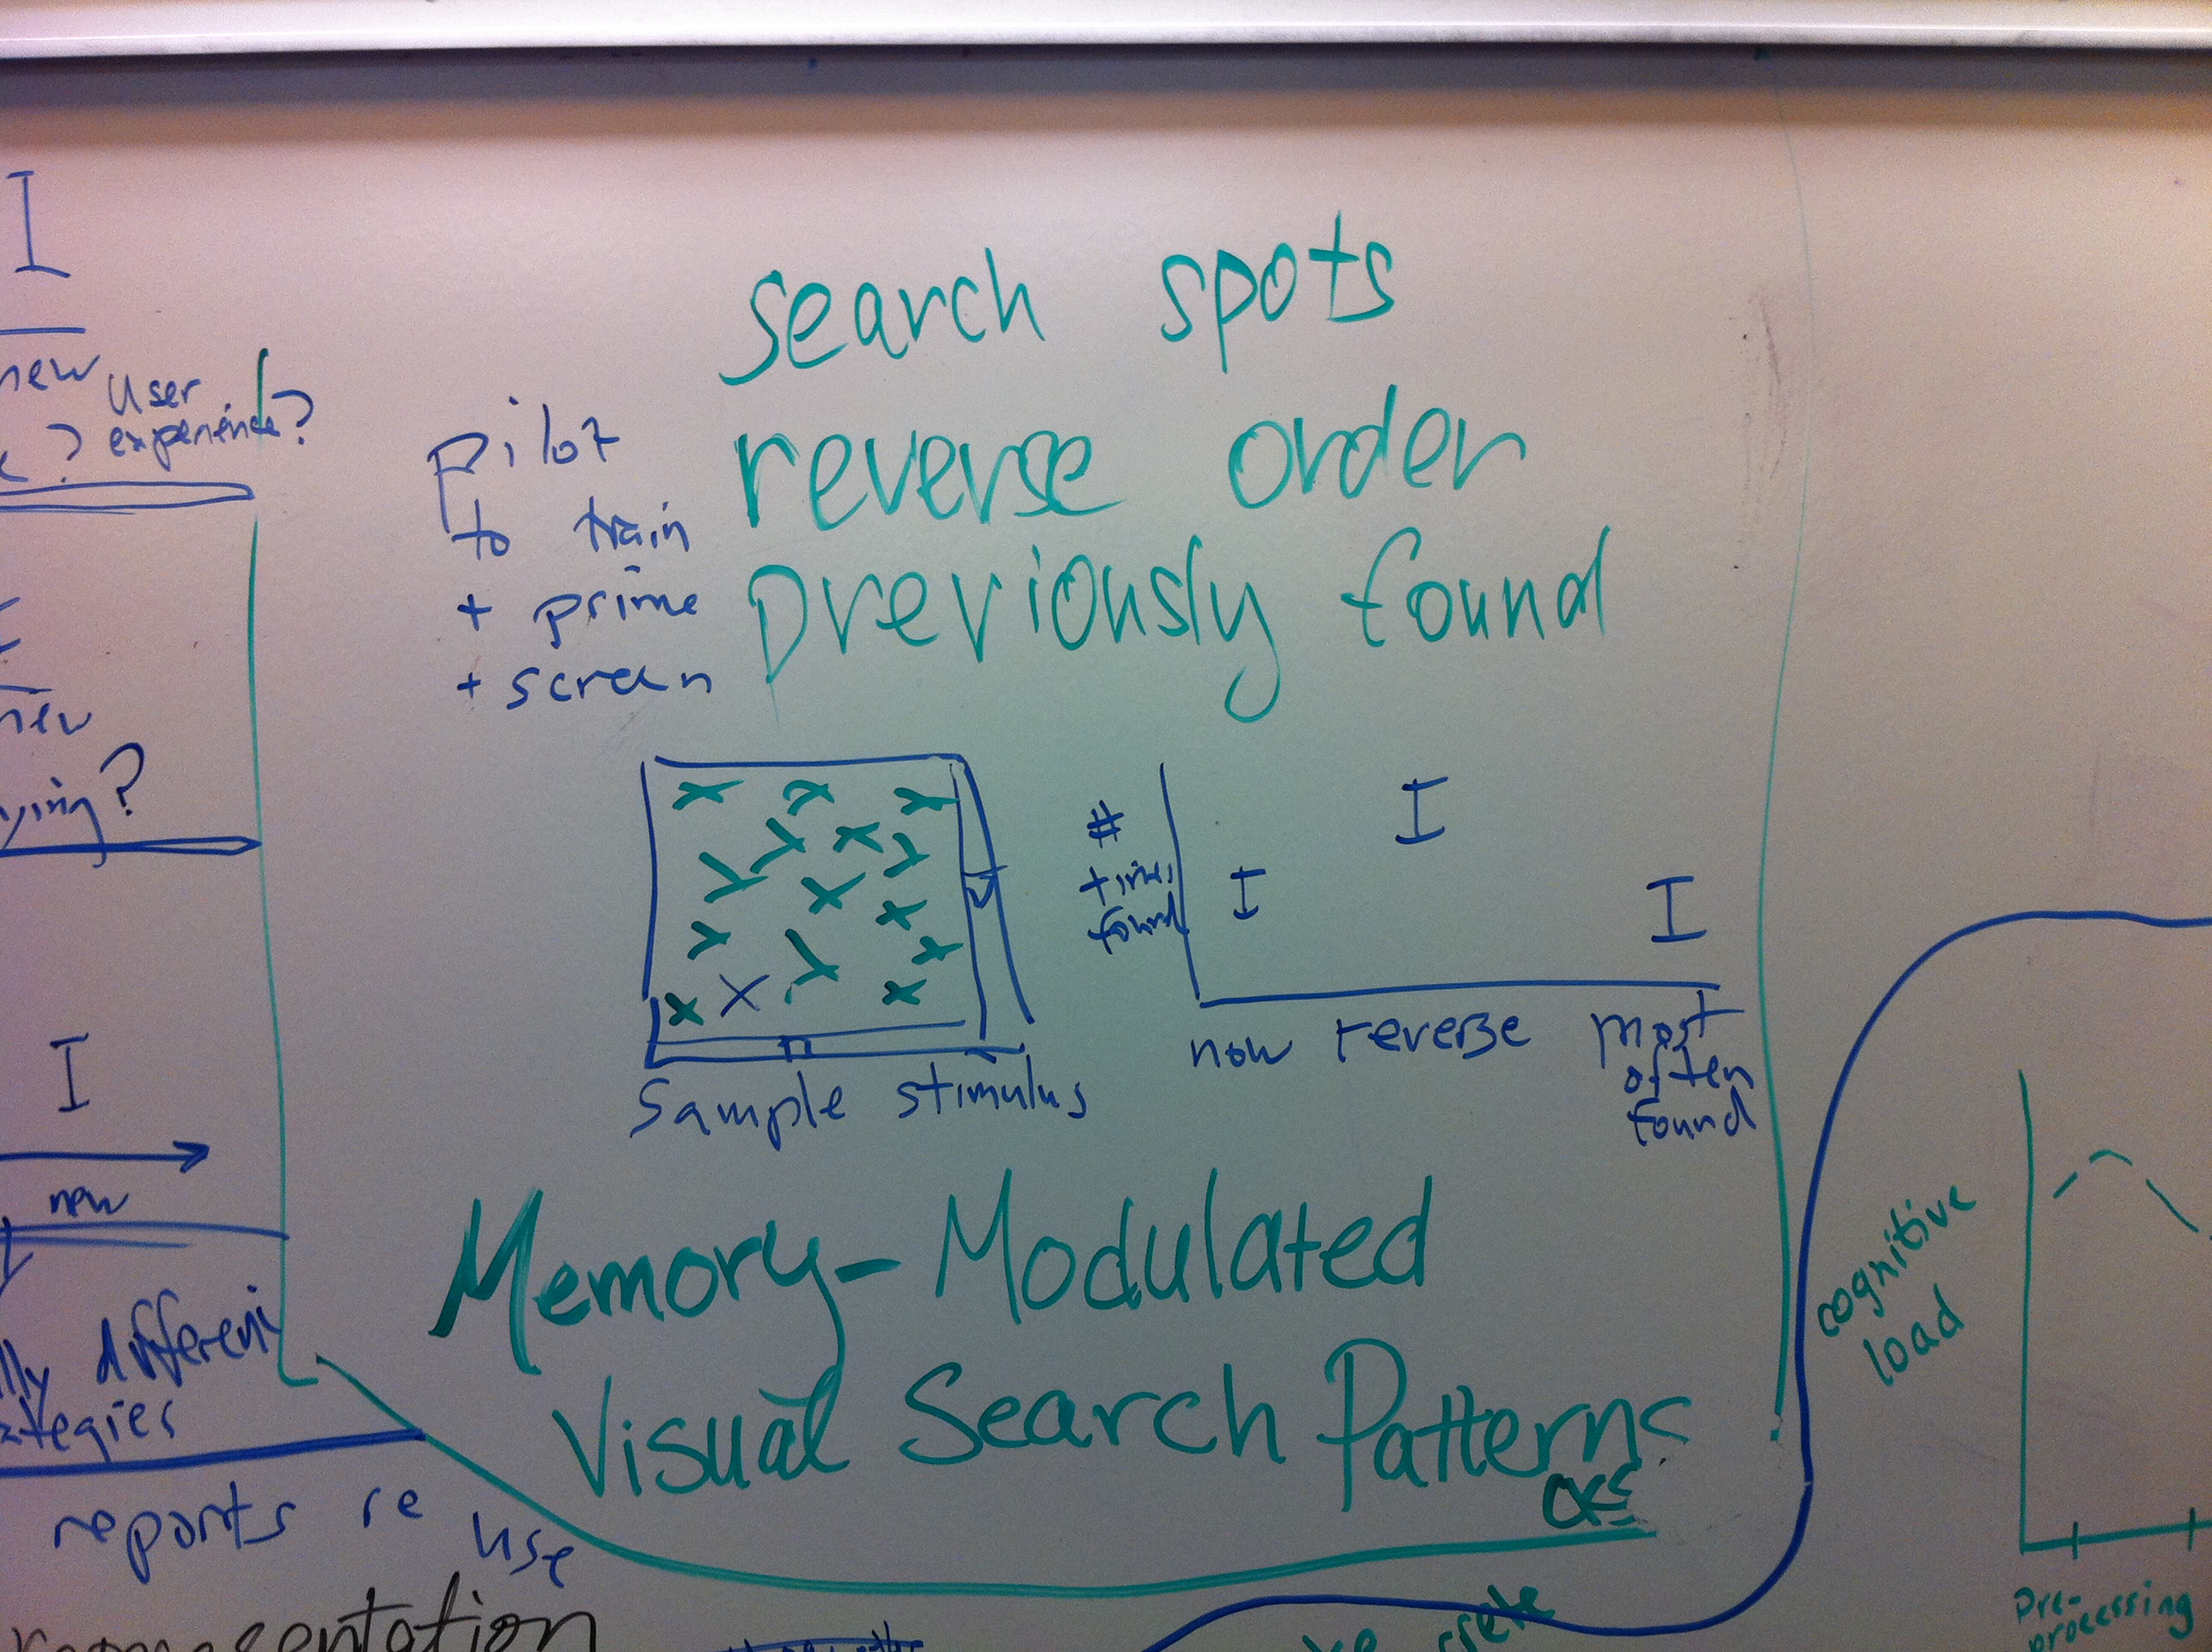 search spots
reverse order
previously found
pilot
to train
+ prime
+ screen
#
times
found
now reverse most
often
found
Sample stimulus
Memory-Modulated
Visual Search Patterns
I
new user
experience?
new
I
new
different
reports re use
cognitive
load
Pre-
processing